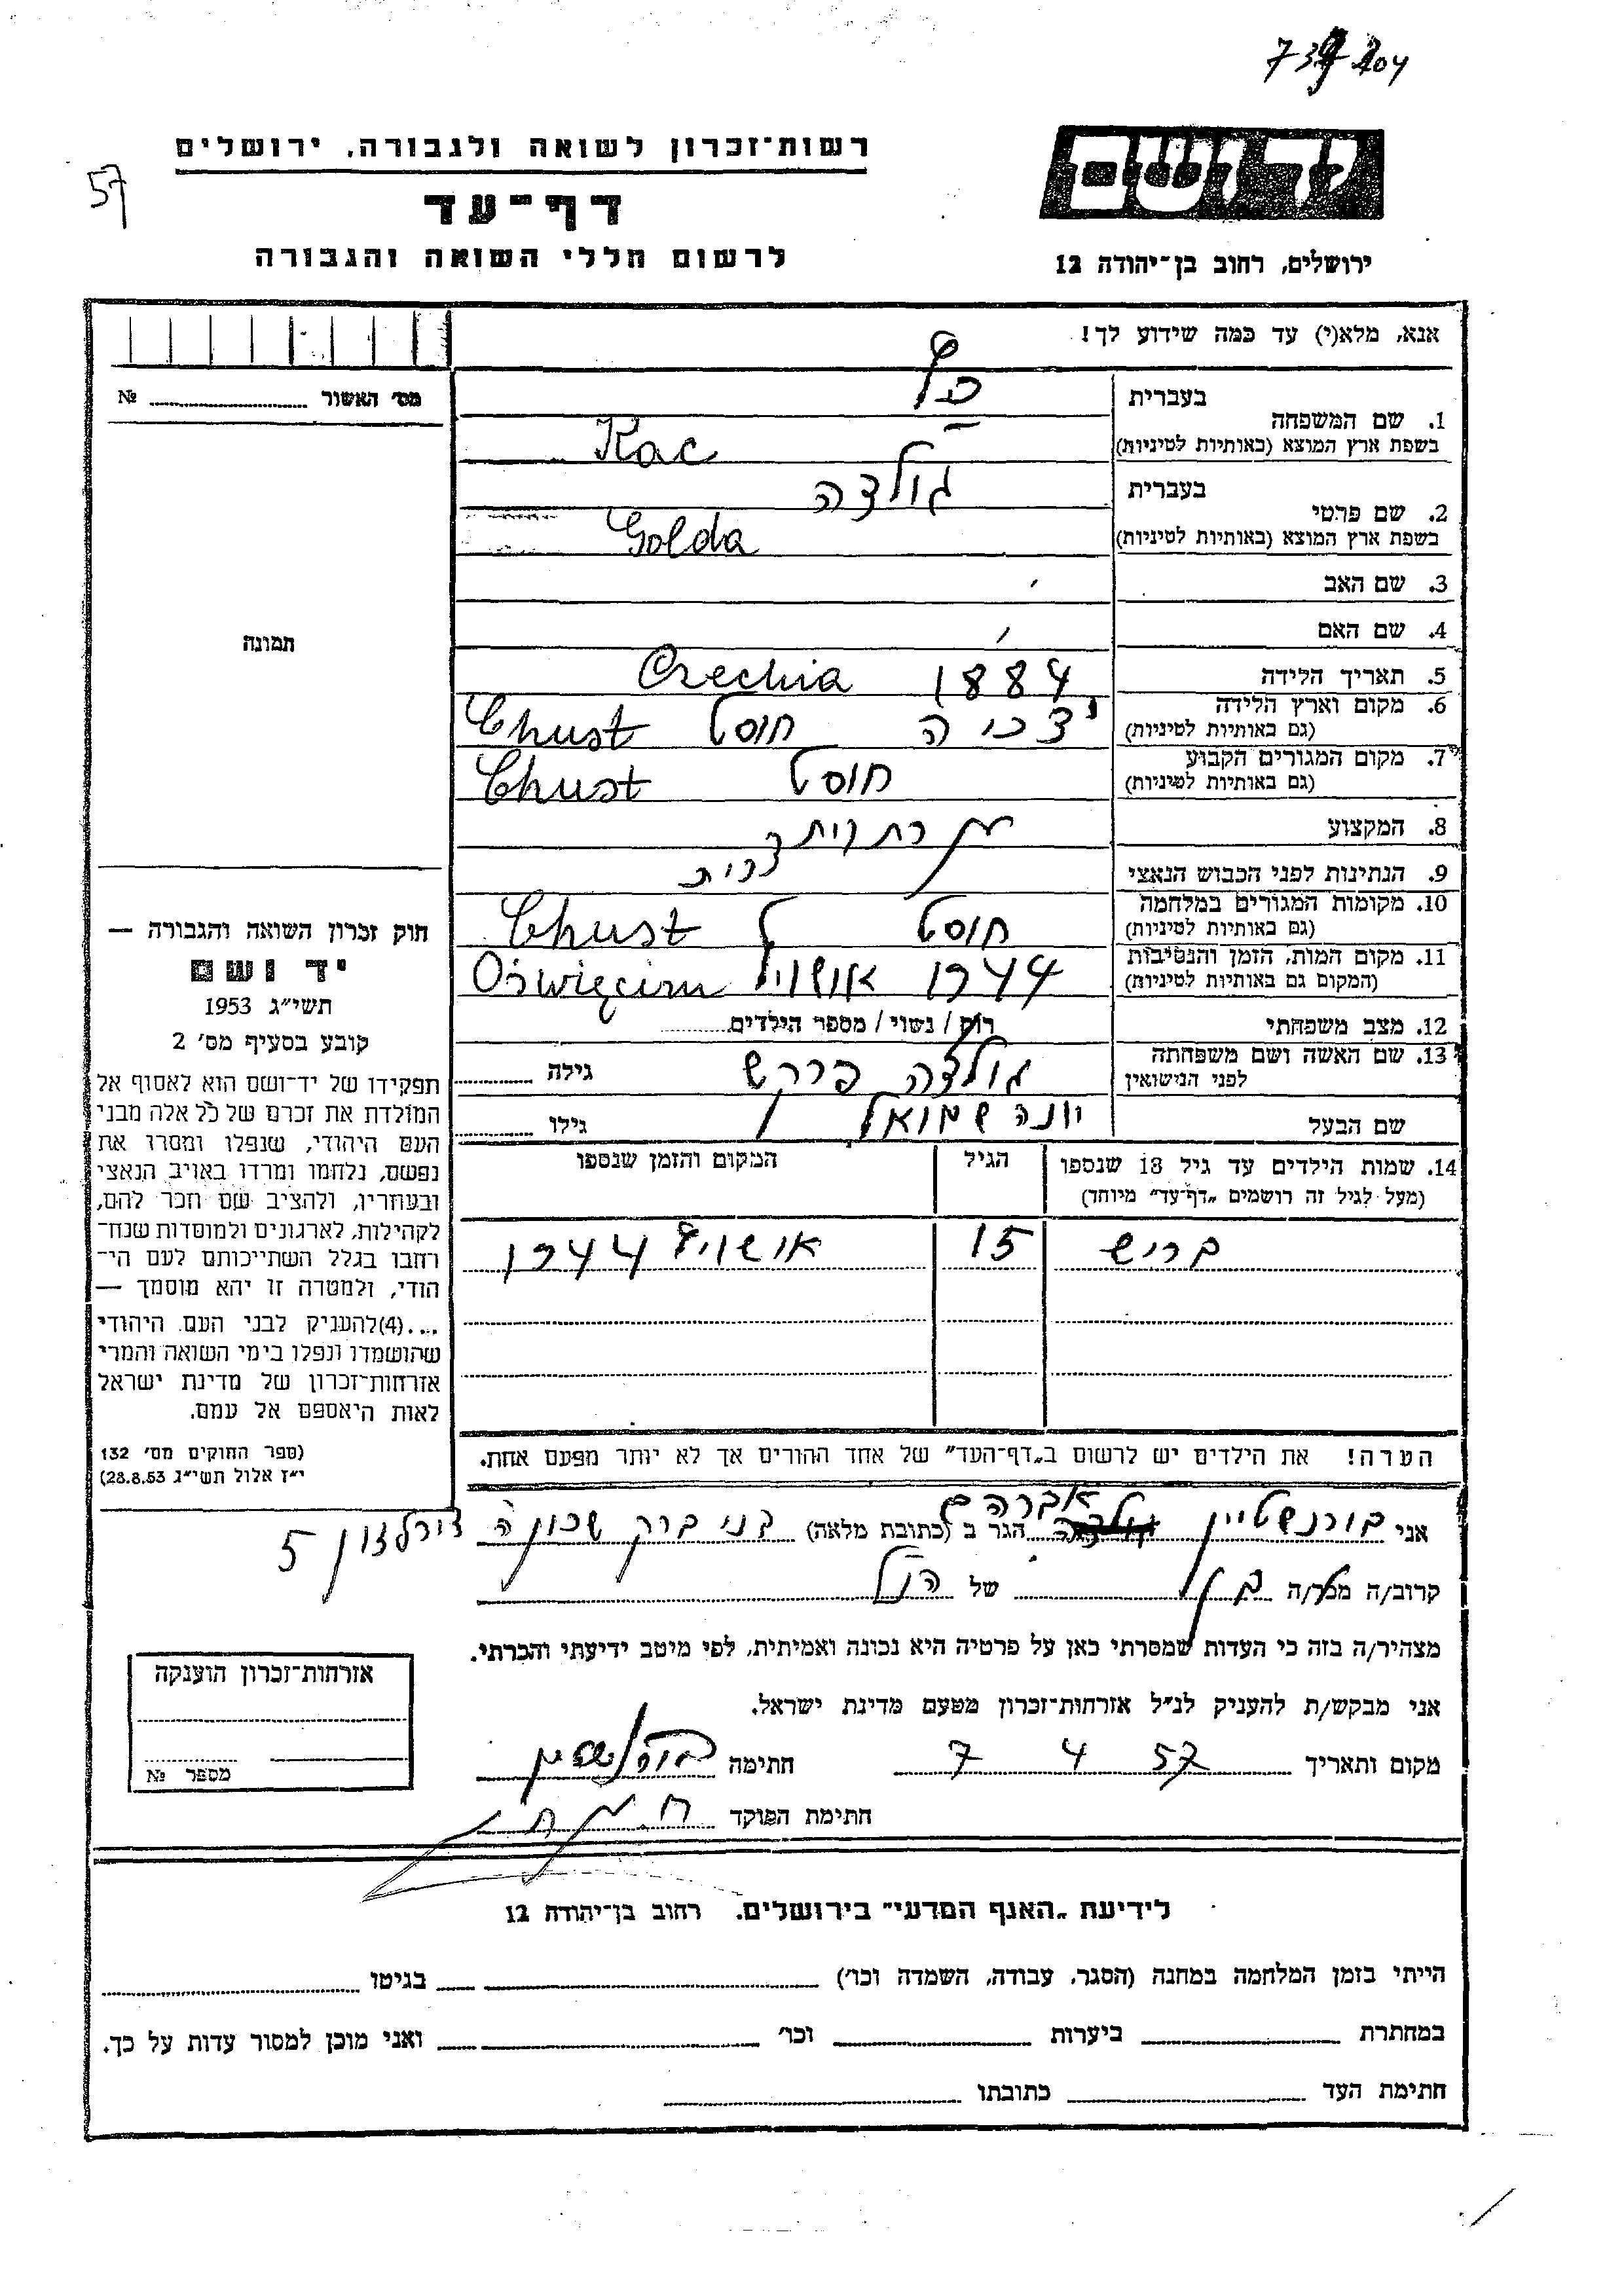 רשות־זכרון לשואה ולגבורה, ירושלים
57
דף־עד
לרשום חללי השואה והגבורה
יד ושם
ירושלים, רחוב בן־יהודה 12
אנא, מלא(י) עד כמה שידוע לך!
מס׳ האשור № 
1. שם המשפחה
בעברית כץ
בשפת ארץ המוצא (באותיות לטיניות) Kac
2. שם פרטי
בעברית גולדה
בשפת ארץ המוצא (באותיות לטיניות) Golda
3. שם האב
4. שם האם
5. תאריך הלידה 1884 Czechia
6. מקום וארץ הלידה חוסט Chust
(גם באותיות לטיניות)
7. מקום המגורים הקבוע חוסט Chust
(גם באותיות לטיניות)
8. המקצוע
9. הנתינות לפני הכבוש הנאצי
10. מקומות המגורים במלחמה חוסט Chust
(גם באותיות לטיניות)
11. מקום המות, הזמן והנסיבות 1944 אושויץ Oświęcim
(המקום גם באותיות לטיניות)
12. מצב משפחתי רווק / נשוי / מספר הילדים
13. שם האשה ושם משפחתה גולדה פרקש גילה
לפני הנישואין
שם הבעל יונה שמואל גילו
14. שמות הילדים עד גיל 18 שנספו הגיל המקום והזמן שנספו
(מעל לגיל זה רושמים „דף־עד״ מיוחד)
בריש 15 אושויץ 1944
הערה! את הילדים יש לרשום ב„דף־העד״ של אחד ההורים אך לא יותר מפעם אחת.
תמונה
חוק זכרון השואה והגבורה —
יד ושם
תשי״ג 1953
קובע בסעיף מס׳ 2
תפקידו של יד־ושם הוא לאסוף אל
המולדת את זכרם של כל אלה מבני
העם היהודי, שנפלו ומסרו את
נפשם, נלחמו ומרדו באויב הנאצי
ובעוזריו, ולהציב שם וזכר להם,
לקהילות, לארגונים ולמוסדות שנח־
רחבו בגלל השתייכותם לעם הי־
הודי, ולמטרה זו יהא מוסמך —
...(4)להעניק לבני העם היהודי
שהושמדו ונפלו בימי השואה והמרי
אזרחות־זכרון של מדינת ישראל
לאות היאספם אל עמם.
(ספר החוקים מס׳ 132
י״ז אלול תשי״ג 28.8.53)
אני בורנשטיין אברהם הגר ב (כתובת מלאה) בני ברק 5
קרוב/ה מכר/ה בן של הנ״ל
מצהיר/ה בזה כי העדות שמסרתי כאן על פרטיה היא נכונה ואמיתית, לפי מיטב ידיעתי והכרתי.
אני מבקש/ת להעניק לנ״ל אזרחות־זכרון מטעם מדינת ישראל.
מקום ותאריך 7 4 57 חתימה בורנשטיין
חתימת הפוקד
אזרחות־זכרון הוענקה
מספר №
לידיעת „האגף המדעי״ בירושלים. רחוב בן־יהודה 12
הייתי בזמן המלחמה במחנה (הסגר, עבודה, השמדה וכו׳) בגיטו
במחתרת ביערות וכו׳ ואני מוכן למסור עדות על כך.
חתימת העד כתובתו